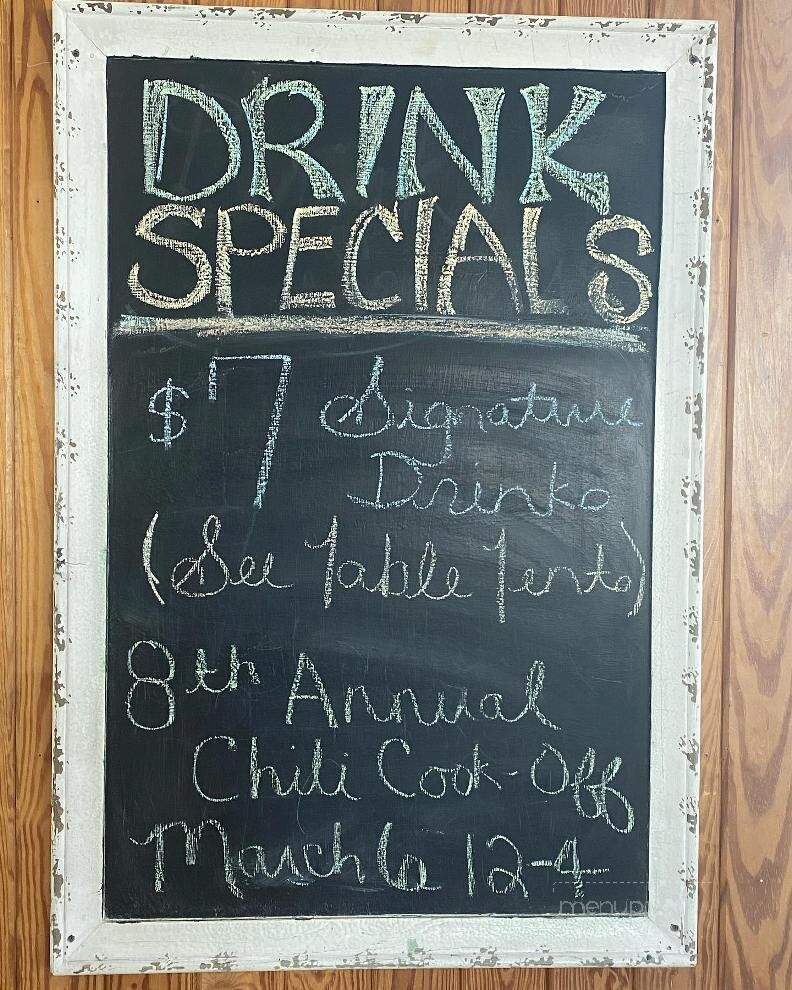 DRINK
SPECIALS
$7 Signature
Drinks
(See Table Tents)
8th Annual
Chili Cook-Off
March 6 12-4